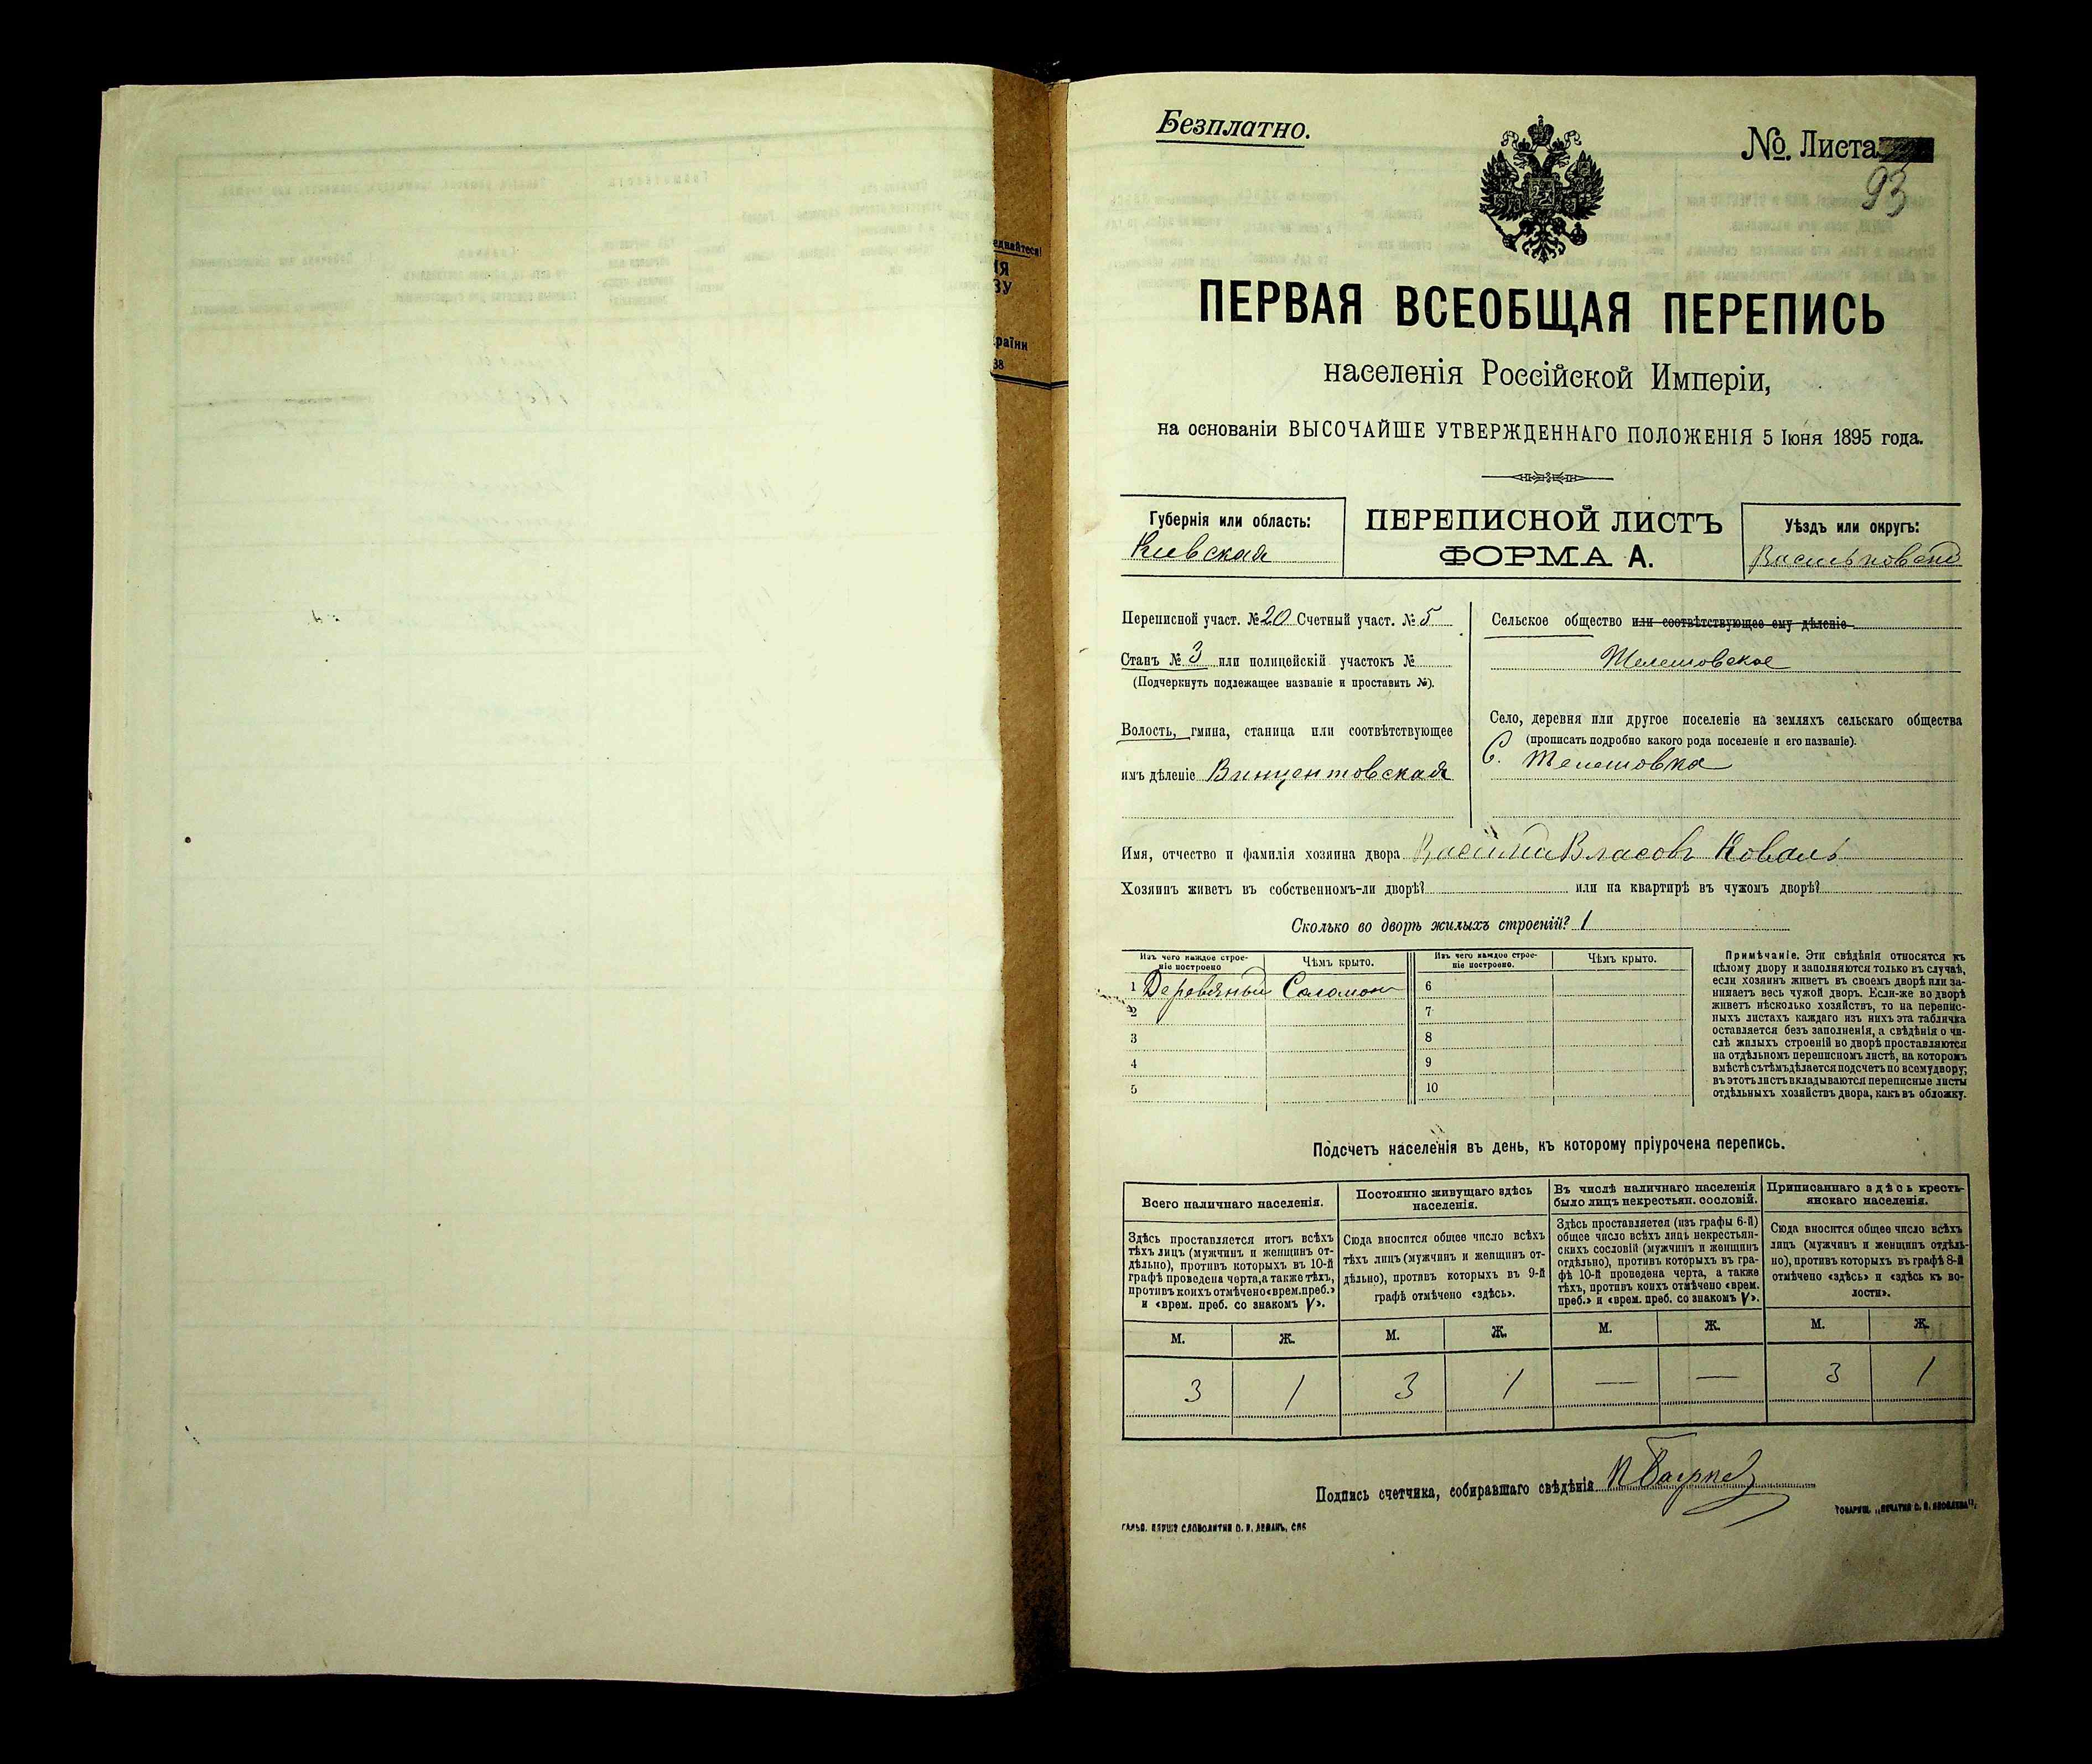 еднайтеся!
ІЯ
ЗУ
країни
38
Безплатно.
№. Листа
93
ПЕРВАЯ ВСЕОБЩАЯ ПЕРЕПИСЬ
населенія Россійской Имперіи,
на основаніи ВЫСОЧАЙШЕ УТВЕРЖДЕННАГО ПОЛОЖЕНІЯ 5 Іюня 1895 года.
Губернія или область:
Киевская
ПЕРЕПИСНОЙ ЛИСТЪ
ФОРМА А.
Уѣздъ или округъ:
Переписной участ. № 20 Счетный участ. № 5
Станъ № 3 или полицейскій участокъ №
(Подчеркнуть подлежащее названіе и проставить №).
Волость, гмина, станица или соотвѣтствующее
имъ дѣленіе Винцентовская
Сельское общество или соотвѣтствующее ему дѣленіе
Телешовское
Село, деревня или другое поселеніе на земляхъ сельскаго общества
(прописать подробно какого рода поселеніе и его названіе).
С. Телешовка
Имя, отчество и фамилія хозяина двора Власовъ Коваль
Хозяинъ живетъ въ собственномъ-ли дворѣ? или на квартирѣ въ чужомъ дворѣ?
Сколько во дворѣ жилыхъ строеній? 1
Изъ чего каждое строе-
ніе построено
Чѣмъ крыто.
Изъ чего каждое строе-
ніе построено.
Чѣмъ крыто.
1 Деревяный Соломою 6
2 7
3 8
4 9
5 10
Примѣчаніе. Эти свѣдѣнія относятся къ
цѣлому двору и заполняются только въ случаѣ,
если хозяинъ живетъ въ своемъ дворѣ или за-
нимаетъ весь чужой дворъ. Если-же во дворѣ
живетъ нѣсколько хозяйствъ, то на перепис-
ныхъ листахъ каждаго изъ нихъ эта табличка
оставляется безъ заполненія, а свѣдѣнія о чи-
слѣ жилыхъ строеній во дворѣ проставляются
на отдѣльномъ переписномъ листѣ, на которомъ
вмѣстѣ съ тѣмъ дѣлается подсчетъ по всему двору;
въ этотъ листъ вкладываются переписные листы
отдѣльныхъ хозяйствъ двора, какъ въ обложку.
Подсчетъ населенія въ день, къ которому пріурочена перепись.
Всего наличнаго населенія.
Здѣсь проставляется итогъ всѣхъ
тѣхъ лицъ (мужчинъ и женщинъ от-
дѣльно), противъ которыхъ въ 10-й
графѣ проведена черта, а также тѣхъ,
противъ коихъ отмѣчено «врем. преб.»
и «врем. преб. со знакомъ V».
Постоянно живущаго здѣсь
населенія.
Сюда вносится общее число всѣхъ
тѣхъ лицъ (мужчинъ и женщинъ от-
дѣльно), противъ которыхъ въ 9-й
графѣ отмѣчено «здѣсь».
Въ числѣ наличнаго населенія
было лицъ некрестьян. сословій.
Здѣсь проставляется (изъ графы 6-й)
общее число всѣхъ лицъ некрестьян-
скихъ сословій (мужчинъ и женщинъ
отдѣльно), противъ которыхъ въ гра-
фѣ 10-й проведена черта, а также
тѣхъ, противъ коихъ отмѣчено «врем.
преб.» и «врем. преб. со знакомъ V».
Приписаннаго здѣсь кресть-
янскаго населенія.
Сюда вносится общее число всѣхъ
лицъ (мужчинъ и женщинъ отдѣль-
но), противъ которыхъ въ графѣ 8-й
отмѣчено «здѣсь» и «здѣсь къ во-
лости».
М. Ж. М. Ж. М. Ж. М. Ж.
3 1 3 1 — — 3 1
Подпись счетчика, собиравшаго свѣдѣнія
СЛОВОЛИТНИ О. И. ЛЕМАНЪ, СПБ
ТОВАРИЩ. „ПЕЧАТНЯ С. П. ЯКОВЛЕВА“.